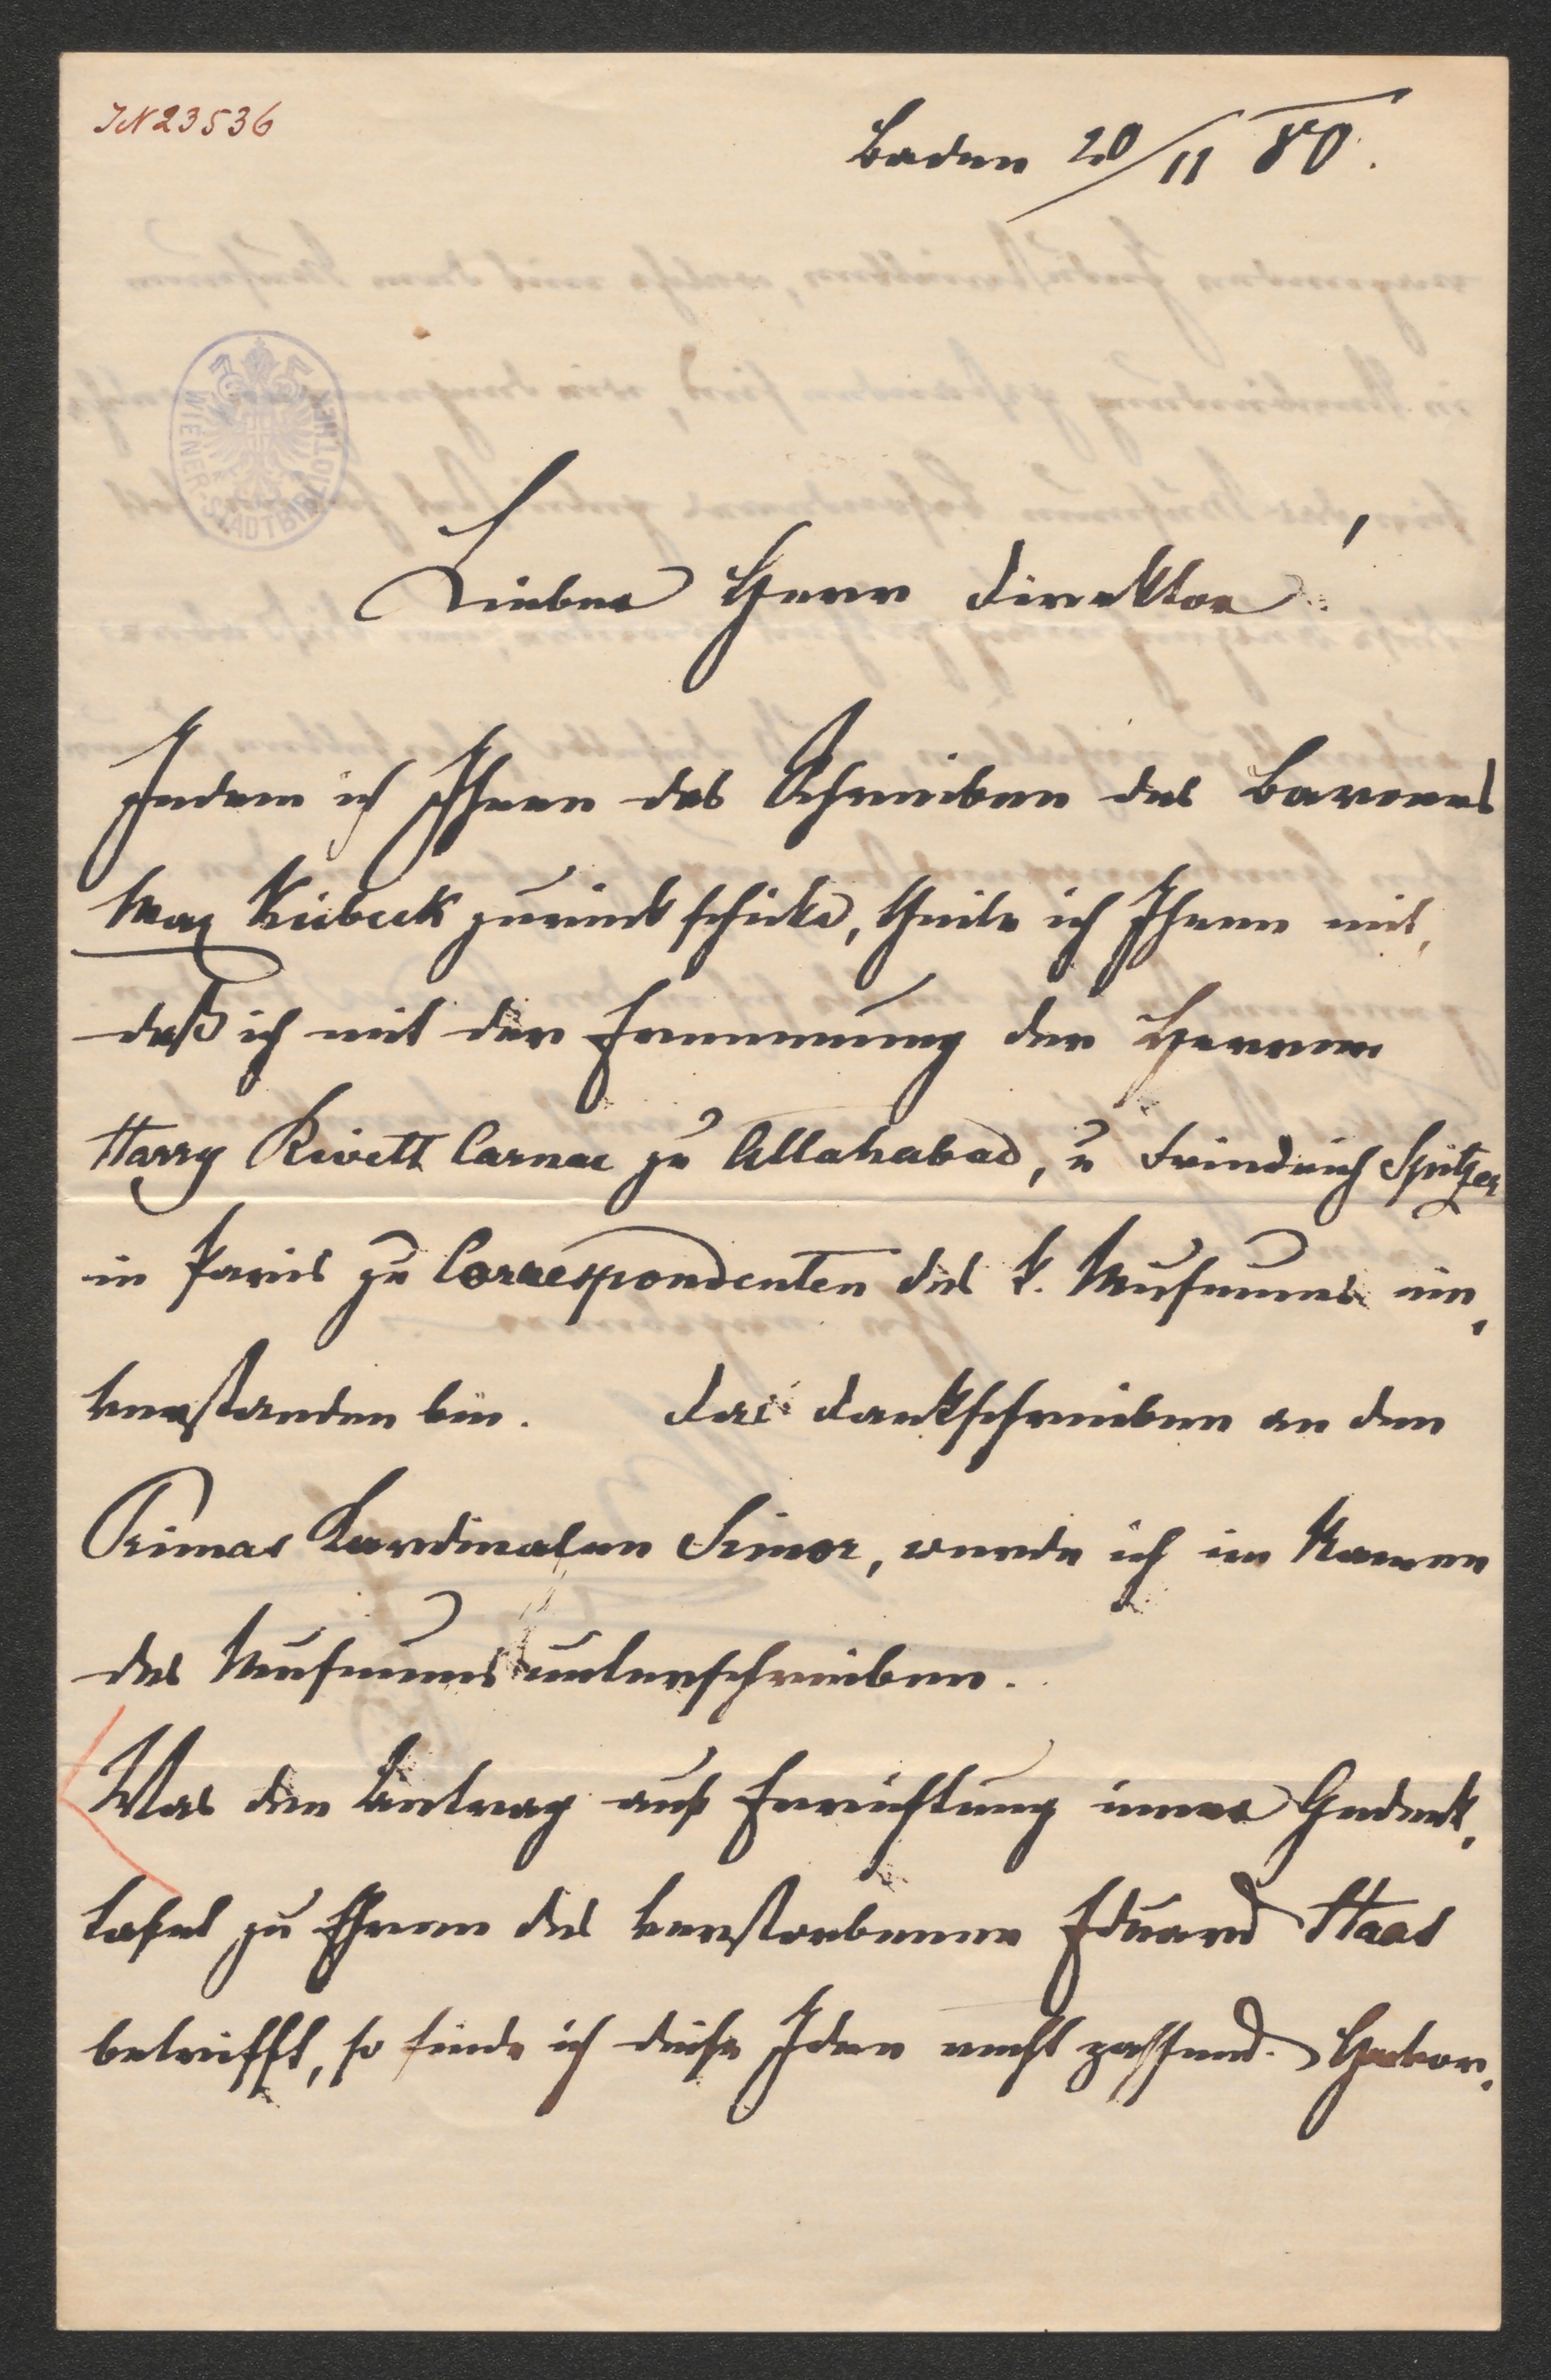 IN 23536
Baden 20/11 80.
WIENER-STADTBIBLIOTHEK
Lieber Herr Direktor!
Indem ich Ihnen das Schreiben des Barones
Max Kübeck zurückschicke, theile ich Ihnen mit,
daß ich mit der Ernennung der Herren
Harry Rivett Carnac zu Allahabad, u Friedrich Spitzer
in Paris zu Correspondenten des k. Museums ein,
verstanden bin. Das Dankschreiben an den
Primas Kardinalen Simor, werde ich im Namen
des Museums unterschreiben.
Was den Antrag auf Errichtung einer Gedenk,
tafel zu Ehren des verstorbenen Eduard Haas
betrifft, so finde ich diese Idee nicht passend.